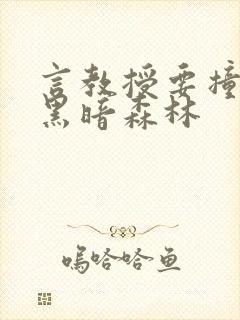 言教授要撞
黑暗森林
呜哈哈鱼